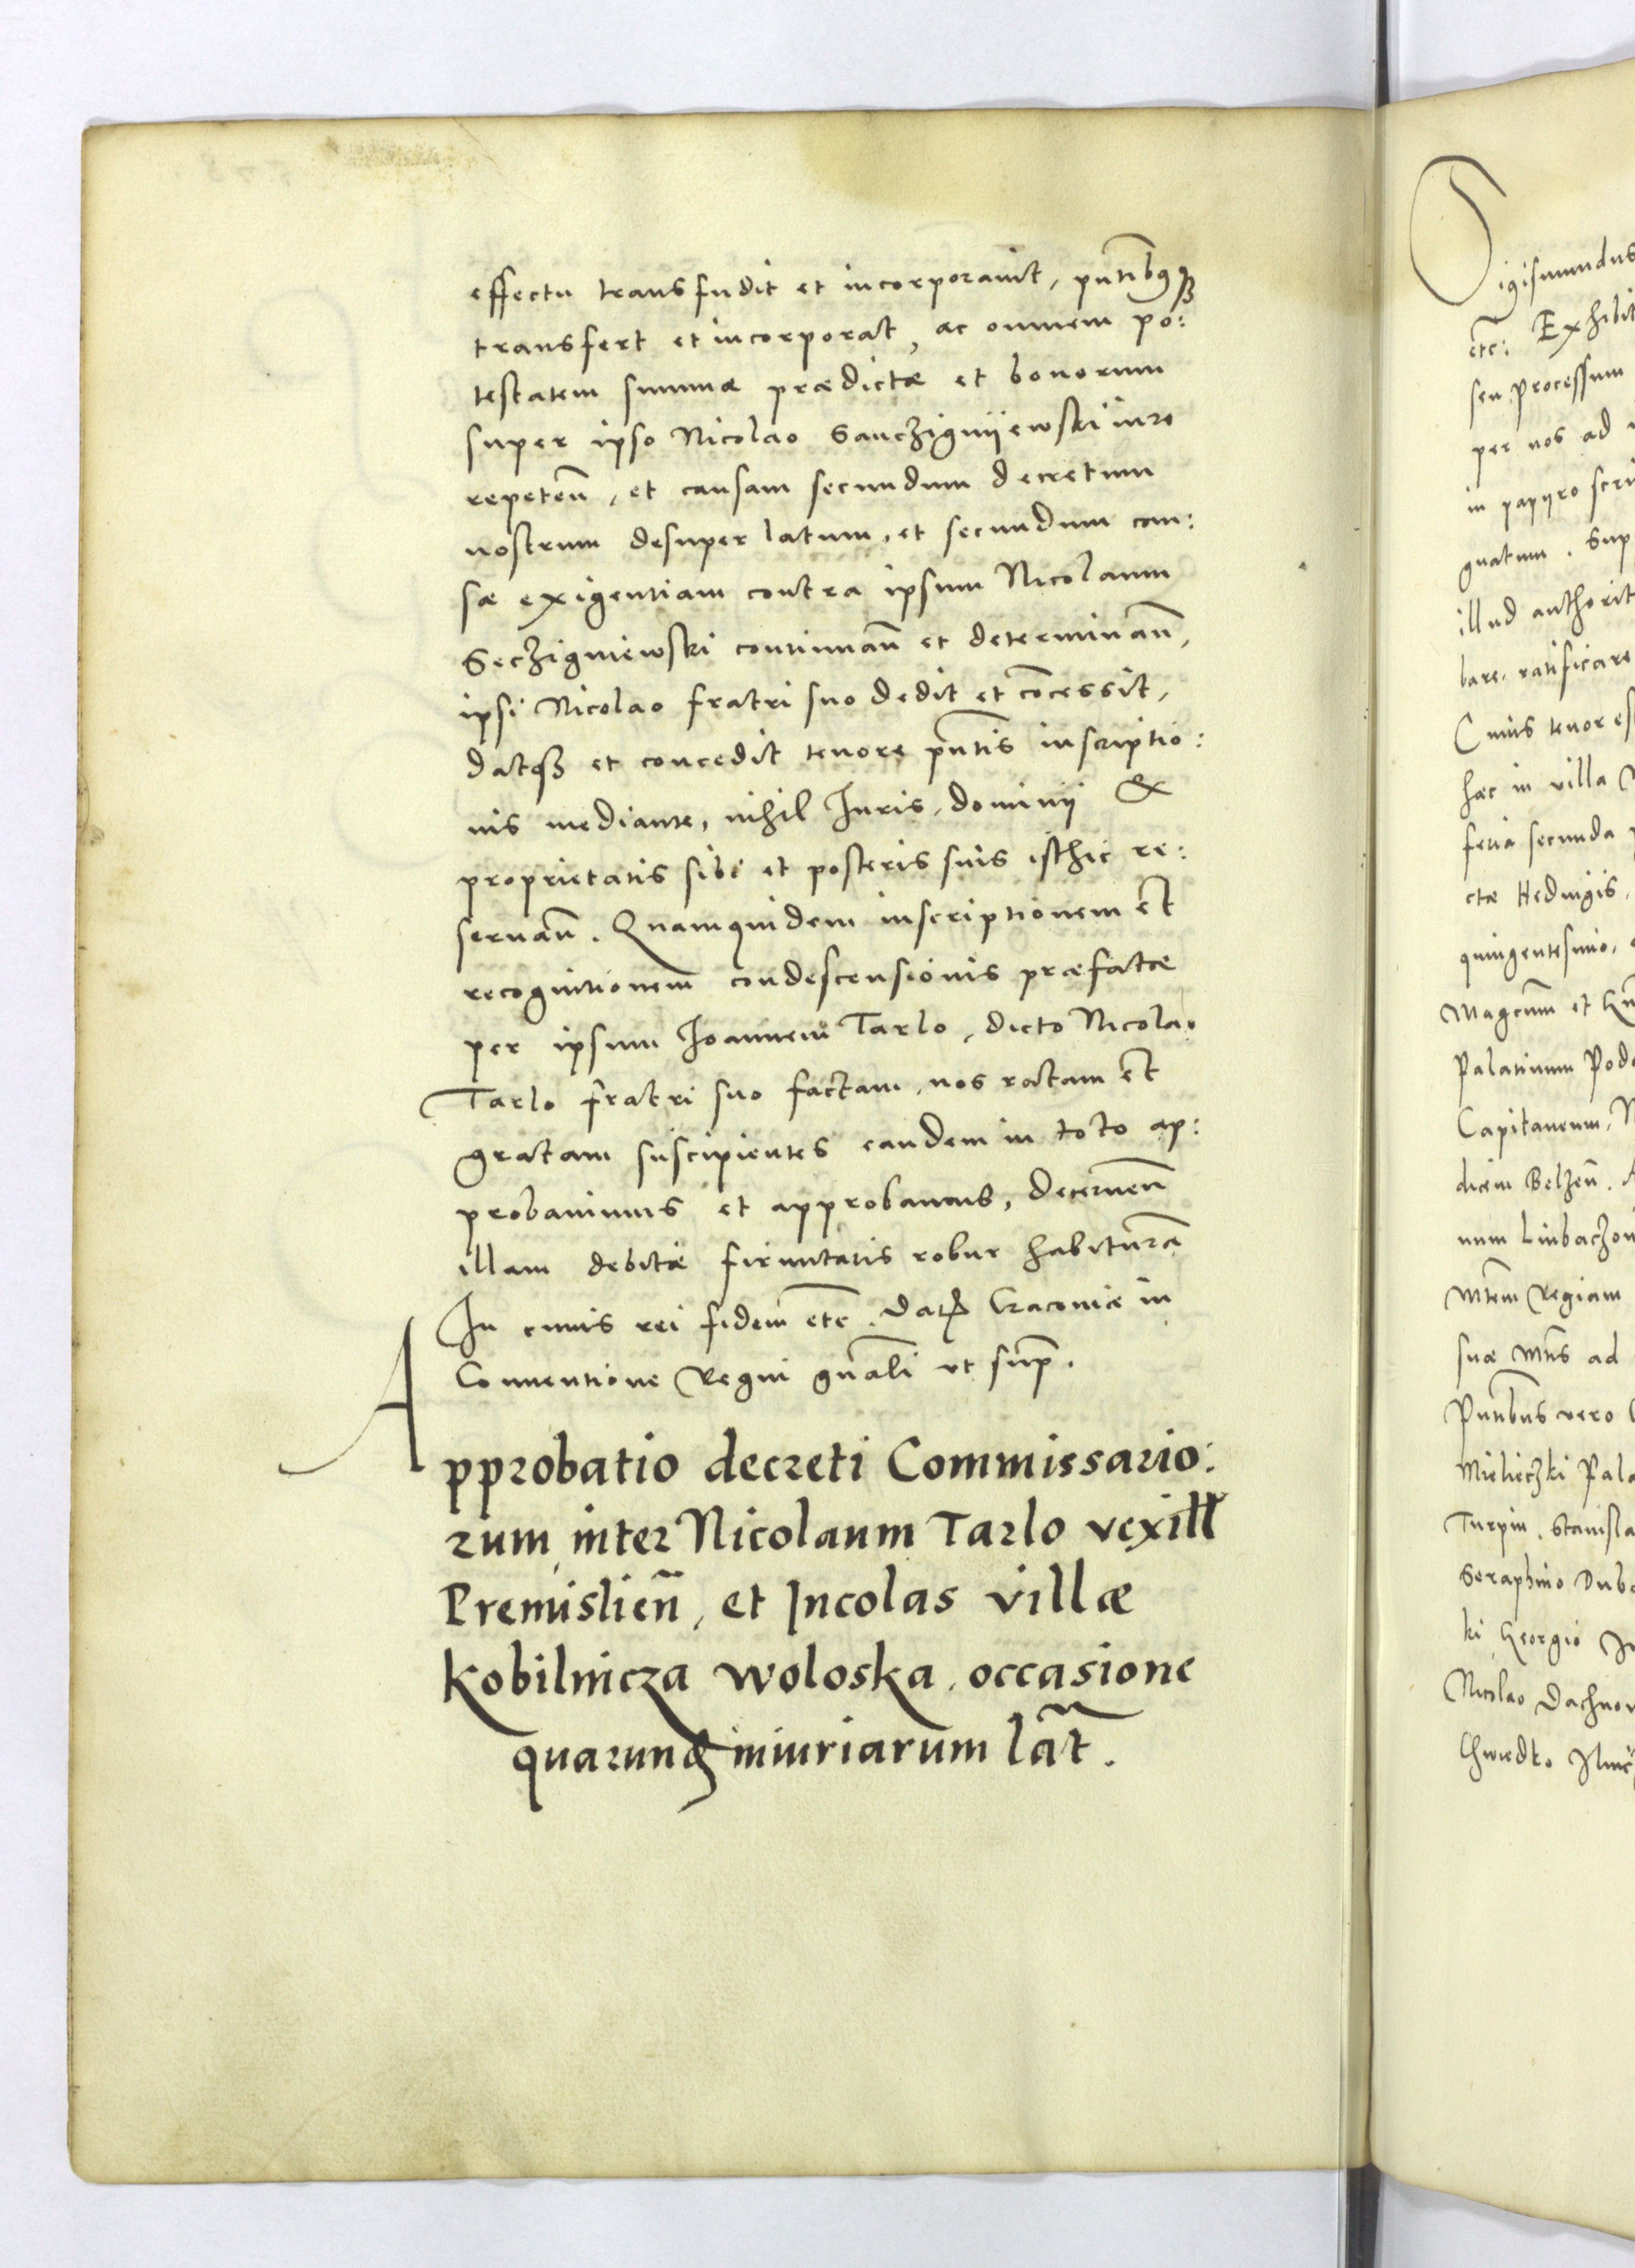 effectu transfudit et incorporavit, pn̄tibꝰqꝫ
transfert et incorporat, ac omnem po:
testatem summæ prædictæ et bonorum
super ipso Nicolao Sanczignijewski iure
repeteñ, et causam secundum decretum
nostrum desuper latum, et secundum cau:
sæ exigentiam contra ipsum Nicolaum
Seczigniewski continuañ et determinañ,
ipsi Nicolao fratri suo dedit et cōcessit,
datqꝫ et concedit tenore pn̄tis inscriptio:
nis mediante, nihil Iuris, dominij &
proprietatis sibi et posteris suis isthic re:
servañ. Quamquidem inscriptionem et
recognitionem condescensionis præfatæ
per ipsum Ioannem Tarlo, dicto Nicolao
Tarlo fratri suo factam, nos ratam et
gratam suscipientes eandem in toto ap:
probavimus et approbamus, decerneñ
illam debitæ firmitatis robur habiturā
In cuius rei fidem etc̄. Datꝭ Cracoviæ in
Conventione Regni gn̄ali ut sup̄.
Approbatio decreti Commissario:
rum inter Nicolaum Tarlo vexill
Premislień, et Incolas villæ
Kobilnicza Woloska, occasione
quarund iniuriarum lāt.
Sigismundus
etc̄: Exhibit
seu processum
per nos ad
in papyro scri
gnatum. Sup
illud authorit
bare, ratificare
Cuius tenor es
hæc in villa
feria secunda
ctæ Hedvigis,
quingentesimo,
Magcum et
Palatinum Podo
Capitaneum,
dicem Belzeñ.
num Liubaczov
Mtem Regiam
suæ Mtis ad
Pntibus vero
Mieliczki Pala
Turpin, Stanisla
Seraphino Dub
ki Georgio
Nicolao Dachnov
Chwedko